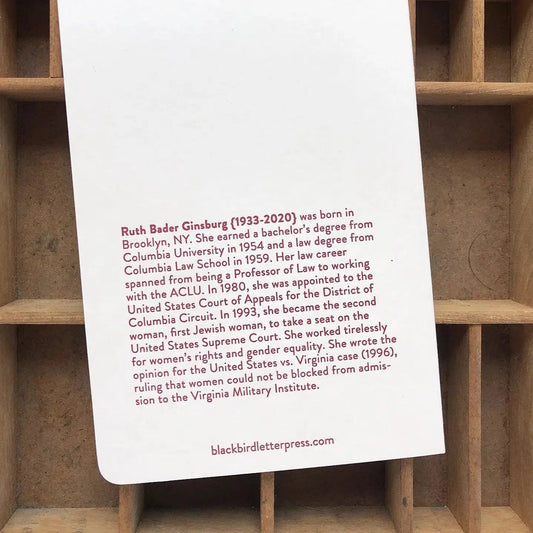 Ruth Bader Ginsburg {1933-2020} was born in
Brooklyn, NY. She earned a bachelor's degree from
Columbia University in 1954 and a law degree from
Columbia Law School in 1959. Her law career
spanned from being a Professor of Law to working
with the ACLU. In 1980, she was appointed to the
United States Court of Appeals for the District of
Columbia Circuit. In 1993, she became the second
woman, first Jewish woman, to take a seat on the
United States Supreme Court. She worked tirelessly
for women's rights and gender equality. She wrote the
opinion for the United States vs. Virginia case (1996),
ruling that women could not be blocked from admis-
sion to the Virginia Military Institute.
blackbirdletterpress.com